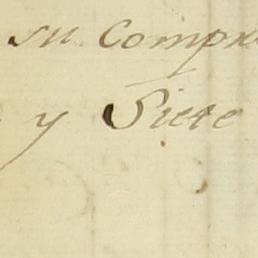 su Compr
y Siete